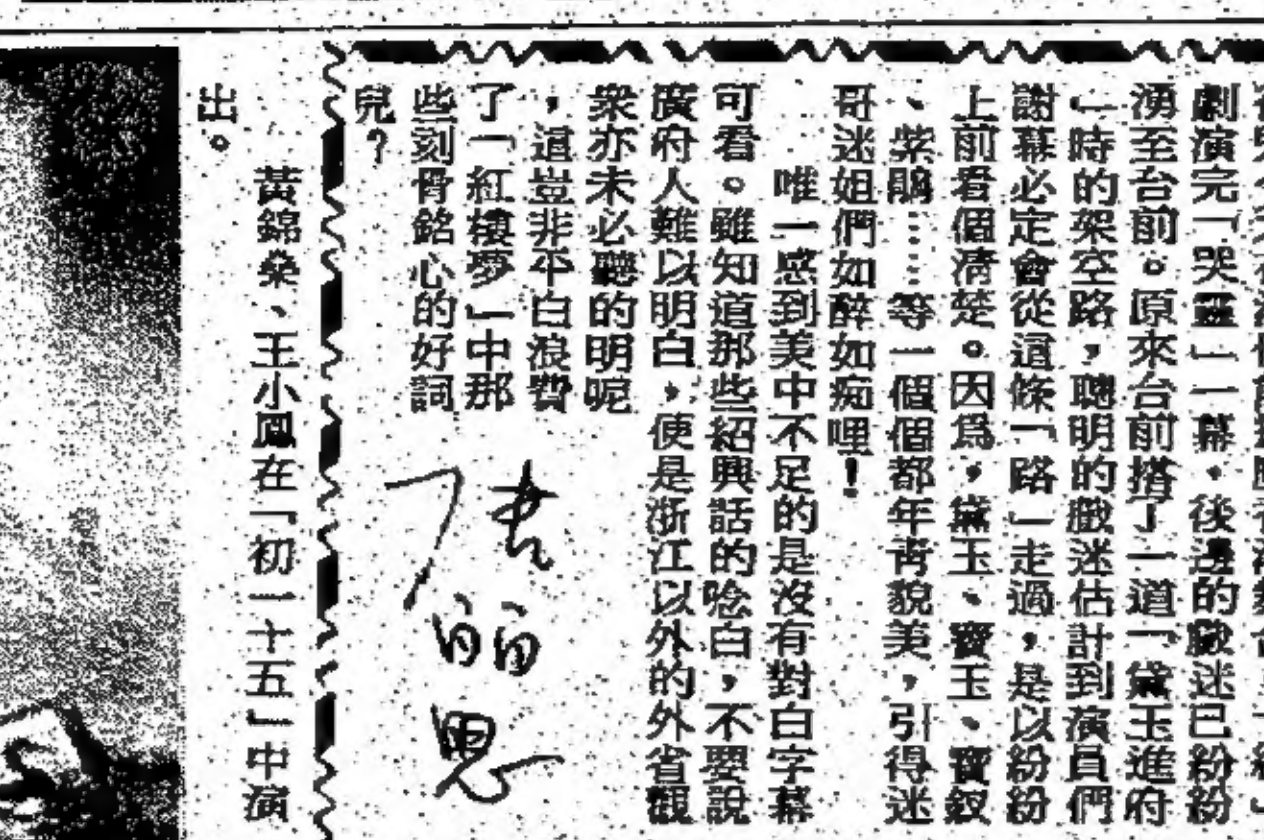 劇演完「哭靈」一幕，後邊的戲迷已紛紛
湧至台前。原來台前搭了一道「黛玉進府
」時的架空路，聰明的戲迷估計到演員們
謝幕必定會從這條「路」走過，是以紛紛
上前看個清楚。因爲，黛玉、寶玉、寶釵
、紫鵑……等一個個都年青貌美，引得迷
哥迷姐們如醉如痴哩！
唯一感到美中不足的是沒有對白字幕
可看。雖知道那些紹興話的唸白，不要說
廣府人難以明白，便是浙江以外的外省觀
衆亦未必聽的明呢
，這豈非平白浪費
了「紅樓夢」中那
些刻骨銘心的好詞
兒？
張
麗
思
黃錦燊、王小鳳在「初一十五」中演
出。